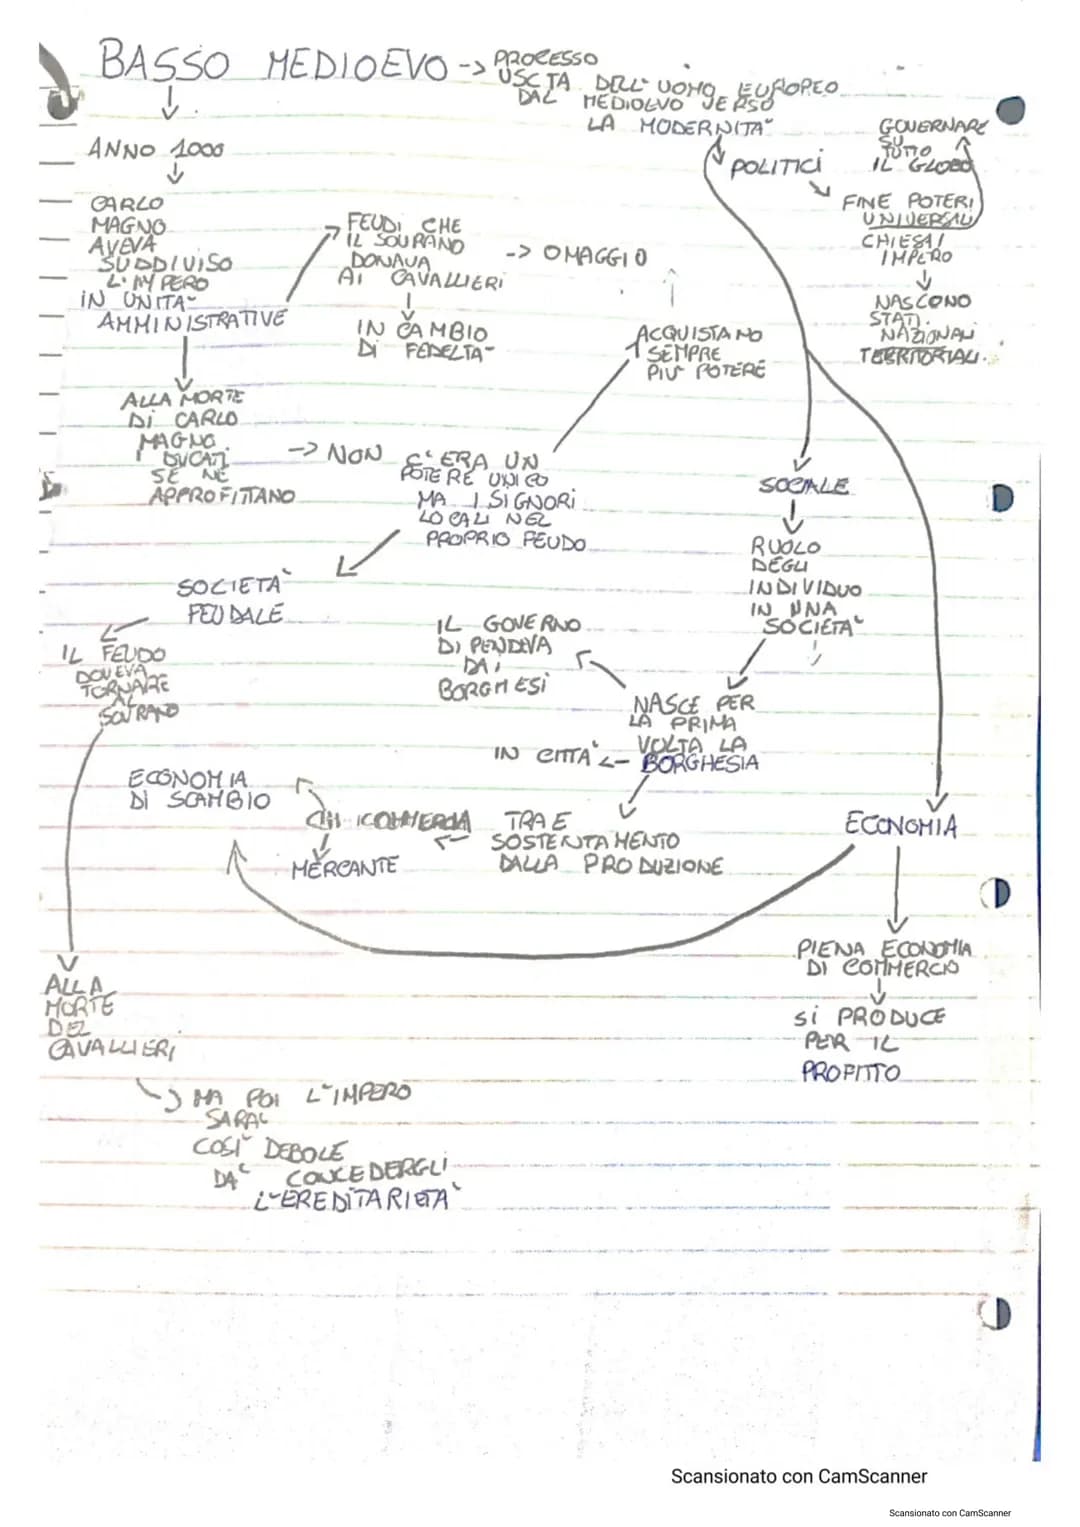 BASSO MEDIOEVO -> PROCESSO
USCTA DELL' UOMO EUROPEO
DAL MEDIOEVO VERSO
LA MODERNITA'
ANNO 1000
CARLO
MAGNO
AVEVA
SUDDIVISO
L'IMPERO
IN UNITA'
AMMINISTRATIVE
FEUDI CHE
IL SOVRANO
DONAVA
AI CAVALLIERI
-> OMAGGIO
IN CAMBIO
DI FEDELTA'
ALLA MORTE
DI CARLO
MAGNO
I DUCATI
SE NE
APPROFITTANO
-> NON C'ERA UN
POTERE UNICO
MA I SIGNORI
LOCALI NEL
PROPRIO FEUDO
ACQUISTANO
SEMPRE
PIU' POTERE
SOCIETA'
FEUDALE
IL FEUDO
DOVEVA
TORNARE
AL
SOVRANO
ALLA
MORTE
DEL
CAVALLIERI
MA POI L'IMPERO
SARA'
COSI' DEBOLE
DA' CONCEDERGLI
L'EREDITARIETA'
POLITICI
FINE POTERI
UNIVERSALI
CHIESA/
IMPERO
GOVERNARE
SU
TUTTO
IL GLOBO
NASCONO
STATI
NAZIONALI
TERRITORIALI.
SOCIALE
RUOLO
DEGLI
INDIVIDUO
IN UNA
SOCIETA'
NASCE PER
LA PRIMA
VOLTA LA
BORGHESIA
IN CITTA' <-
IL GOVERNO
DIPENDEVA
DAI
BORGHESI
TRAE
SOSTENTAMENTO
DALLA PRODUZIONE
MERCANTE
ECONOMIA
DI SCAMBIO
ECONOMIA
PIENA ECONOMIA
DI COMMERCIO
SI PRODUCE
PER IL
PROFITTO
Scansionato con CamScanner
Scansionato con CamScanner